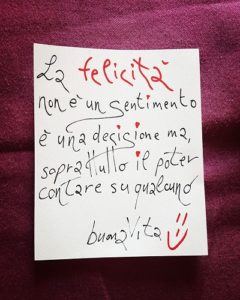 La felicità
non è un sentimento
è una decisione ma,
soprattutto il poter
contare su qualcuno
buona Vita